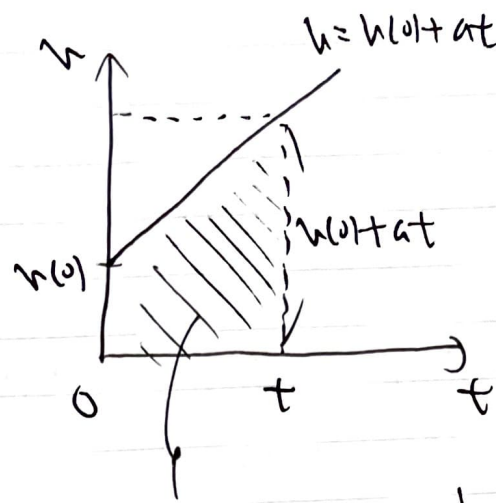 v = v(0) + at
v
v(0) + at
v(0)
0 t t